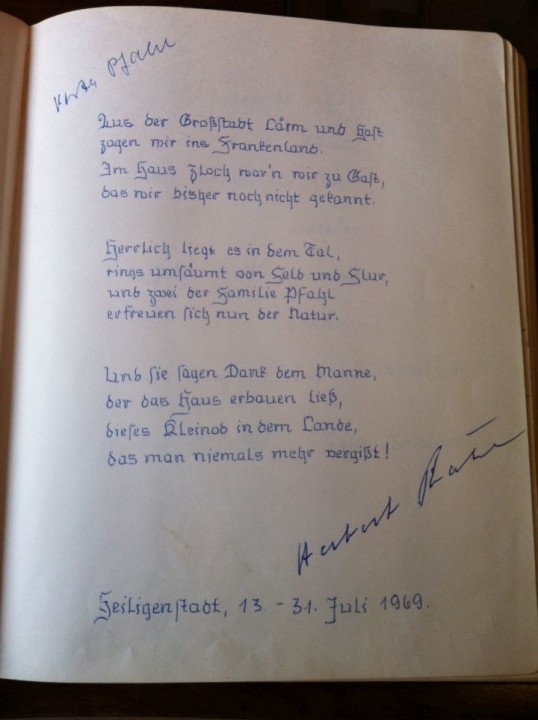 Pfahl
Aus der Großstadt Lärm und Hast
zogen wir ins Frankenland.
Im Haus Floch war'n wir zu Gast,
das wir bisher noch nicht gekannt.
Herrlich liegt es in dem Tal,
rings umsäumt von Feld und Flur,
und zwei der Familie Pfahl
erfreuen sich nun der Natur.
Und sie sagen Dank dem Manne,
der das Haus erbauen ließ,
dieses Kleinod in dem Lande,
das man niemals mehr vergißt!
Herbert
Heiligenstadt, 13. - 31. Juli 1969.